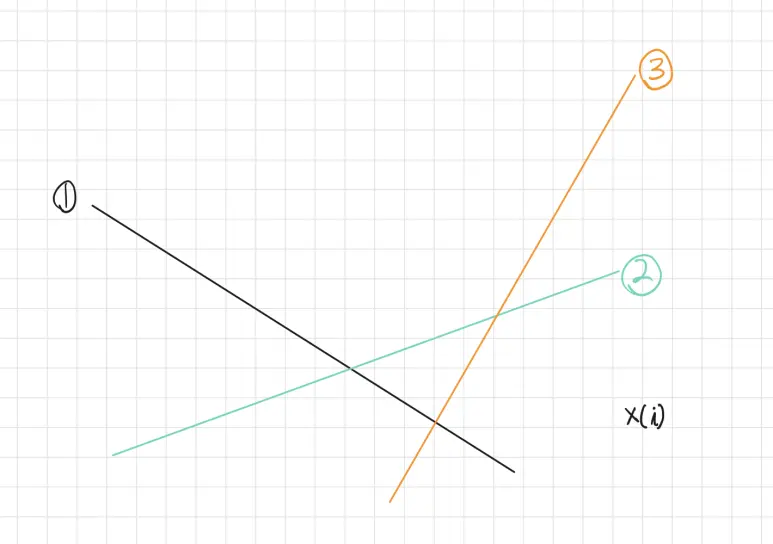 ③
①
②
x(i)